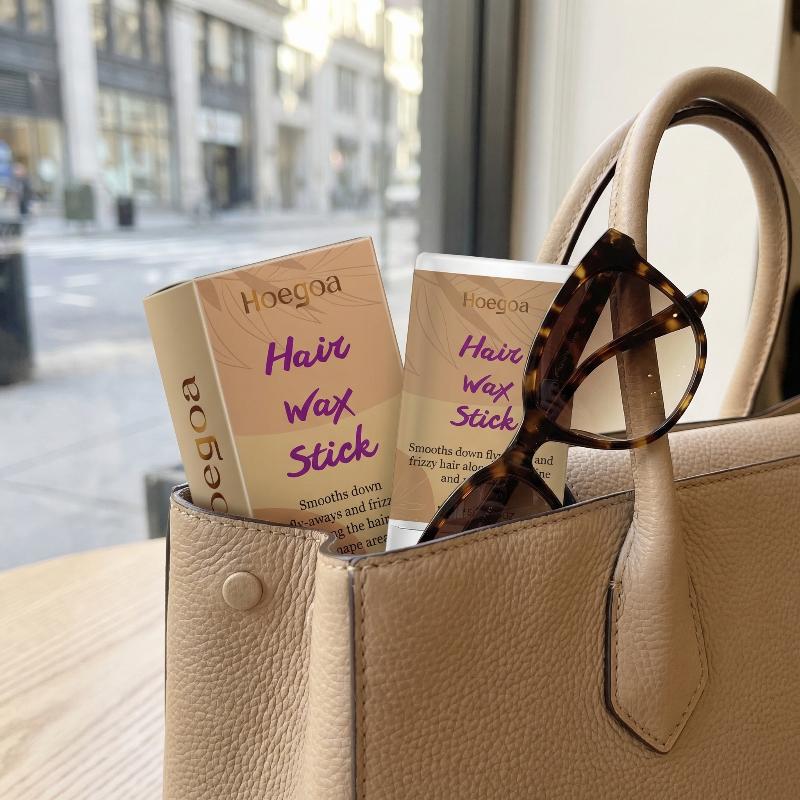 Hoegoa
Hair
Wax
Stick
Smooths down
fly-aways and frizz
ng the hair
nape area
oegoa
Hoegoa
Hair
Wax
Stick
Smooths down fly and
frizzy hair alon ine
and